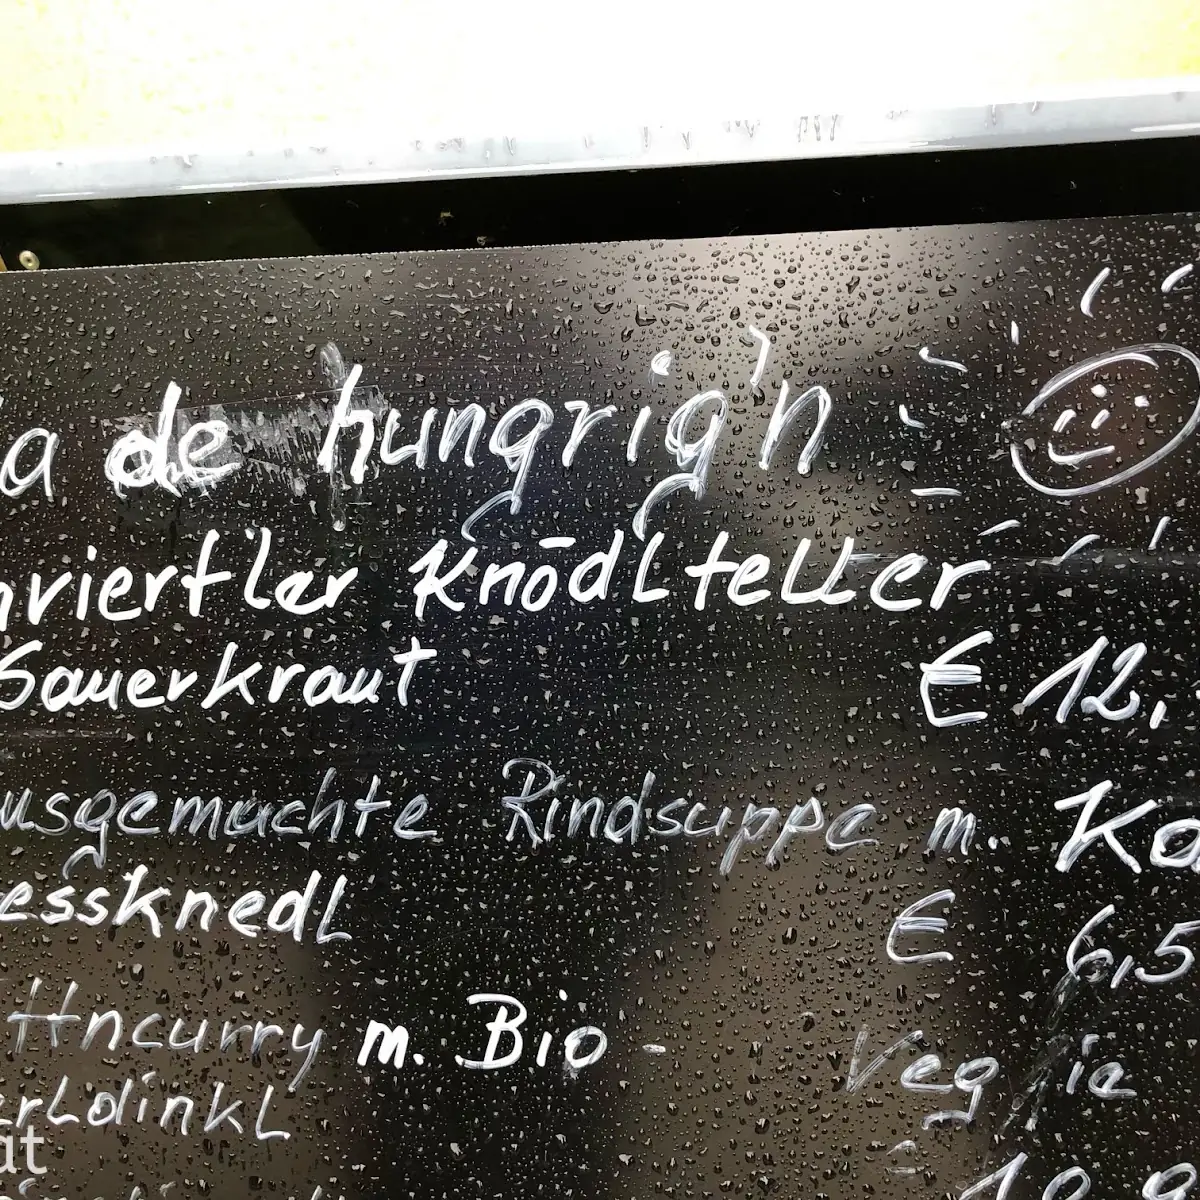 a de hungrig'n
viertler Knödlteller
Sauerkraut € 12,
usgemachte Rindsuppe m. Ka
essknedl € 6,5
ttncurry m. Bio- Veggie
erLdinkl
at